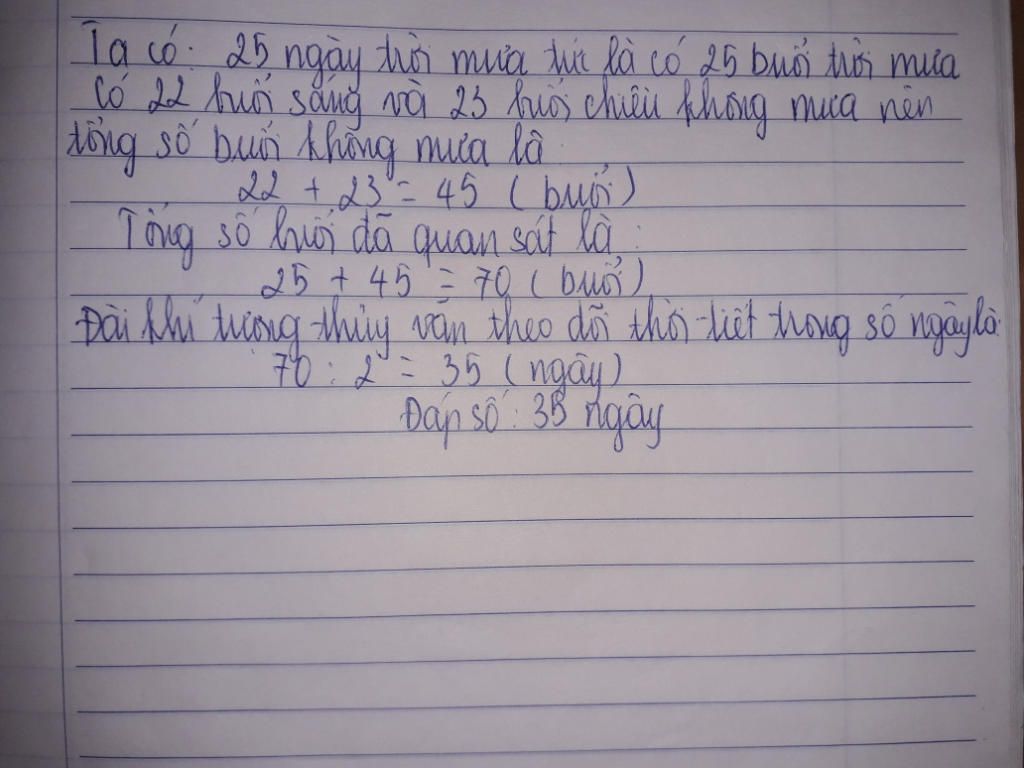 Ta có: 25 ngày trời mưa tức là có 25 buổi trời mưa
Có 22 buổi sáng và 23 buổi chiều không mưa nên
tổng số buổi không mưa là
22 + 23 = 45 (buổi)
Tổng số buổi đã quan sát là :
25 + 45 = 70 (buổi)
Đài khí tượng thủy văn theo dõi thời tiết trong số ngày là:
70 : 2 = 35 (ngày)
Đáp số : 35 ngày